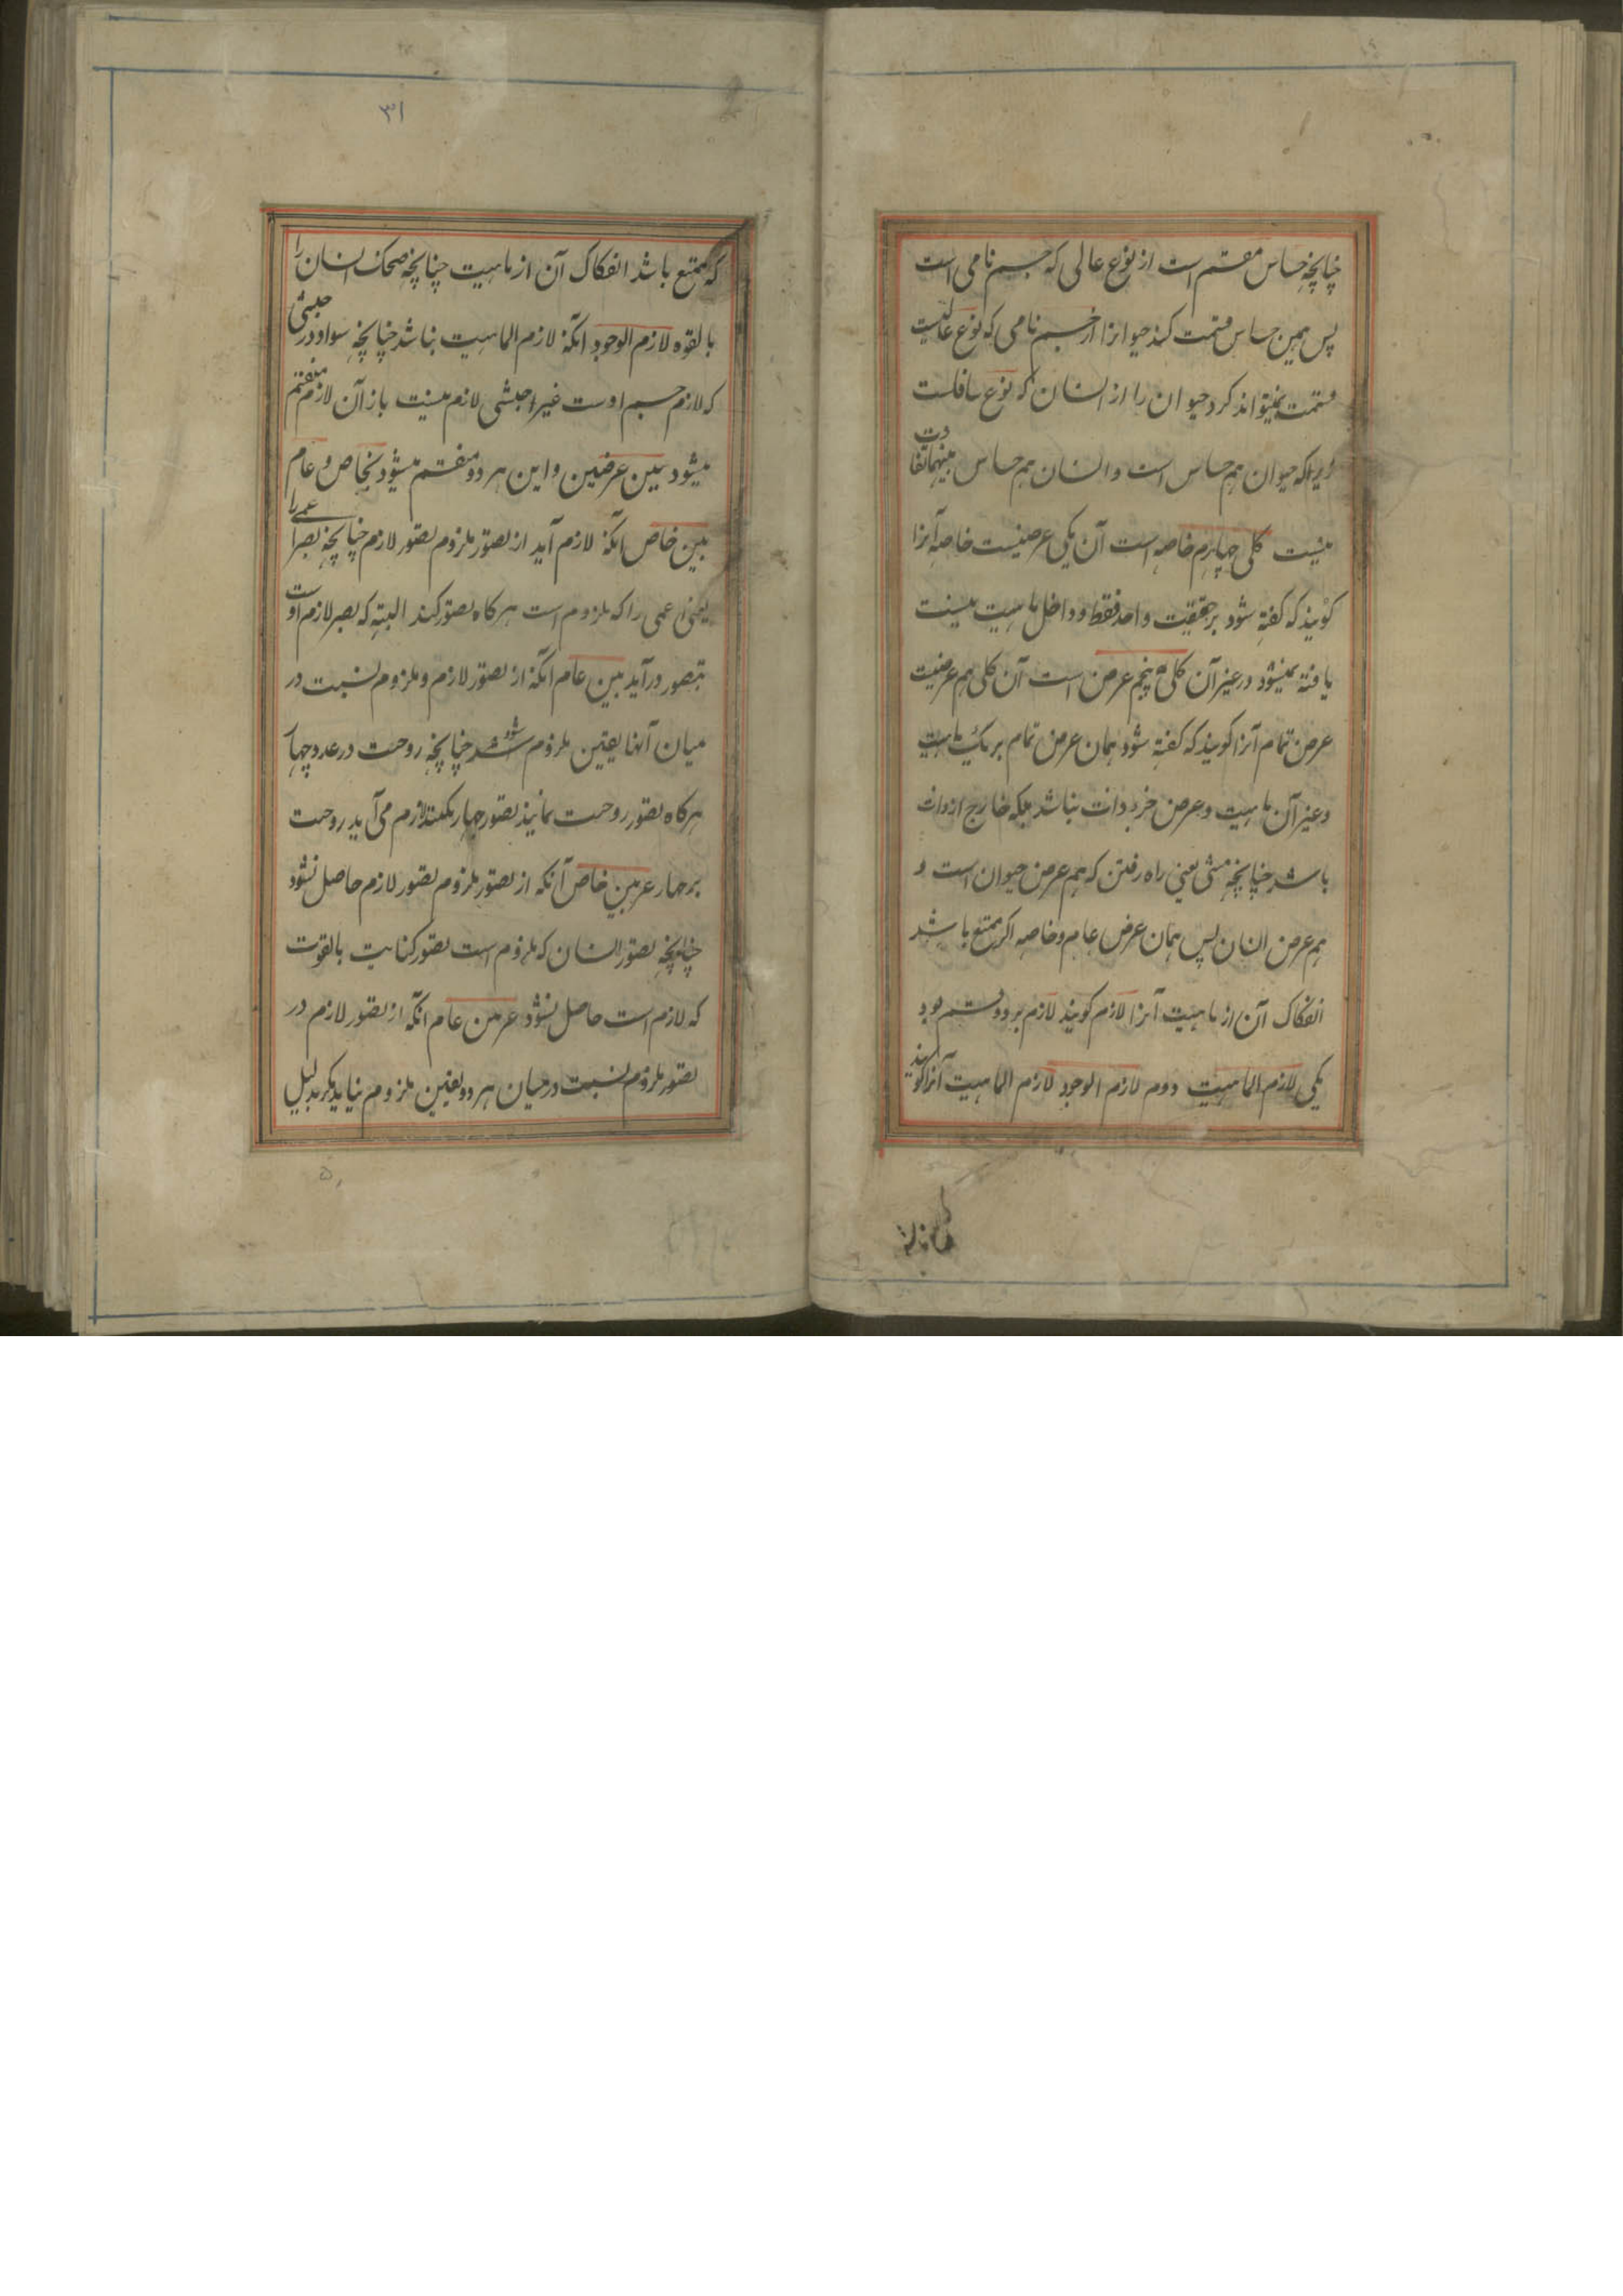 چنانچه حساس مقسم است از نوع عالی که جسم نامی است
پس همین حساس قسمت کند حیوانرا از جسم نامی که نوع عالیست
قسمت نمیتواند کرد حیوان را از انسان که نوع سافلست
زیراکه حیوان هم حساس است و انسان هم حساس بینهما تفاوت
نیست کلی چهارم خاصه است آن یکی عرضیست خاصه آنرا
گویند که گفته شود بر حقیقت واحد فقط و داخل ماهیت نیست
یافته نمیشود در غیر آن کلی پنجم عرض است آن کلی هم عرضیت
عرض تمام آنرا گویند که گفته شود همان عرض تمام بر یک ماهیت
و غیر آن ماهیت و عرض جزء ذات نباشد بلکه خارج از ذات
باشد چنانچه مشی یعنی راه رفتن که هم عرض حیوان است و
هم عرض انسان پس همان عرض عام و خاصه اگر ممتنع باشد
انفکاک آن از ماهیت آنرا لازم گویند لازم بر دو قسم بود
یکی لازم الماهیت دوم لازم الوجود لازم الماهیت آنرا گویند
۳۱
که ممتنع باشد انفکاک آن از ماهیت چنانچه ضحک انسان را
بالقوه لازم الوجود آنکه لازم الماهیت نباشد چنانچه سواد در حبشی
که لازم جسم اوست غیر حبشی لازم نیست باز آن لازم منقسم
میشود بین غیر بین و این هر دو منقسم میشود بخاص و عام
بین خاص آنکه لازم آید از تصور ملزوم تصور لازم چنانچه بصر عمی را
یعنی عمی را که ملزوم است هرکاه تصور کند البته که بصر لازم اوست
بتصور درآید بین عام آنکه از تصور لازم و ملزوم نسبت در
میان آنها یقین ملزوم شود چنانچه زوجیت در عدد چهار
هرکاه تصور زوجیت نمایند تصور چهار بکنند لازم می آید زوجیت
بر چهار غیر بین خاص آنکه از تصور ملزوم تصور لازم حاصل نشود
چنانچه تصور انسان که ملزوم است تصور کتابت بالقوت
که لازم است حاصل نشود غیر بین عام آنکه از تصور لازم در
تصور ملزوم نسبت درمیان هر دو یقین ملزوم نیاید مگر بدلیل